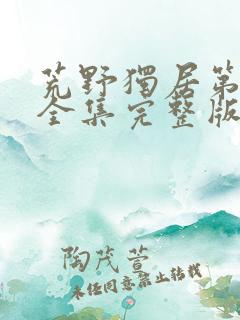 荒野獨居第
全集完整版
陶茂萱
未经同意禁止转载